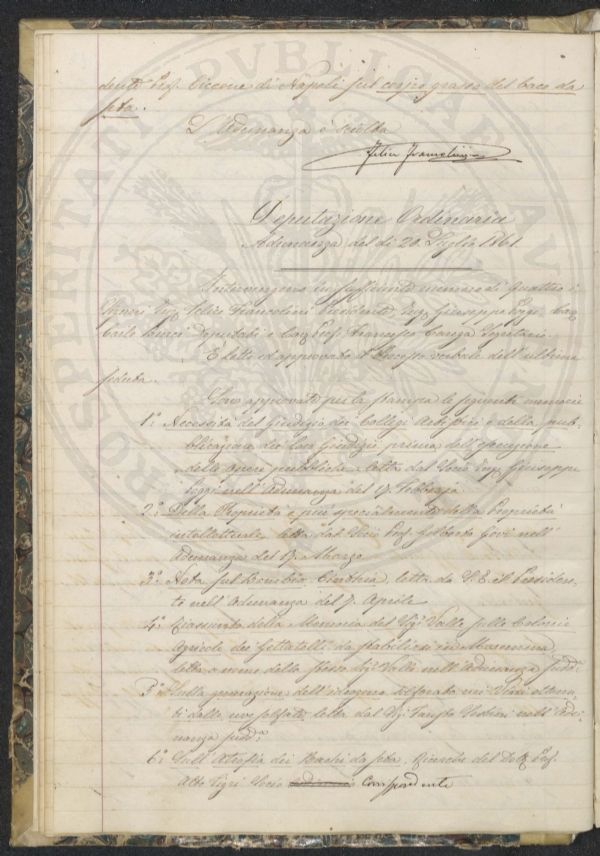 dente Prof. Ciccone di Napoli sul corpo grasso del baco da
seta.
L'Adunanza è sciolta
Felice Francolini
Deputazione Ordinaria
Adunanza del dì 20. Luglio 1861.
Intervengono in sufficiente numero di quattro i
Signori Ing. Felice Francolini Presidente, Ing. Giuseppe Poggi, Cav.
Carlo Deputati e Cav. Prof. Francesco Segretario.
È letto ed approvato il Processo verbale dell'ultima
seduta.
Sono approvate per la stampa le seguenti memorie
1.° Necessità del Giudizio dei Collegi Artistici e della pub-
blicazione dei loro Giudizi prima dell'esecuzione
delle opere pubbliche, letta dal Socio Ing. Giuseppe
Poggi nell'Adunanza del 17 Febbrajo.
2.° Della Proprietà e più specialmente della Proprietà
intellettuale, letta dal Socio Prof. Gilberto Govi nell'
Adunanza del 17. Marzo
3.° Nota sul Bombix Cinthia, letta da S. E. il Presiden-
te nell'Adunanza del 7. Aprile
4.° Riassunto della Memoria del Sig. Valle sulle Colonie
Agricole dei Gettatelli da stabilirsi in Maremma,
letta a nome dello stesso Sig. Valle nell'Adunanza sudd.a
5.° Sulla generazione dell'idrogeno solforato nei Vini ottenu-
ti dalle uve solfate, letta dal Sig. nell'Adu-
nanza sudd.a
6.° Sull'Atrofia dei Bachi da seta, Ricerche del Dott. Prof.
Atto Tigri Socio Corrispondente